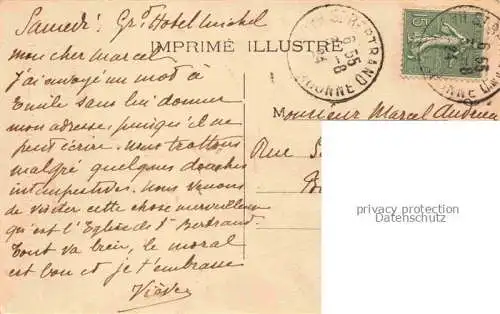 Samedi. Gr^d Hotel Michel
IMPRIMÉ ILLUSTRÉ
Mon cher Marcel
J'ai envoyé un mot à
Emile sans lui donner
mon adresse, puisqu'il ne
peut écrire. Nous trottons
malgré quelques douches
intempestives. Nous venons
de visiter cette chose merveilleuse
qu'est l'Eglise de St Bertrand.
Tout va bien, le moral
est bon et je t'embrasse
BERTRAND
6 55
GARONNE
15
Monsieur Marcel
Rue
privacy protection
Datenschutz